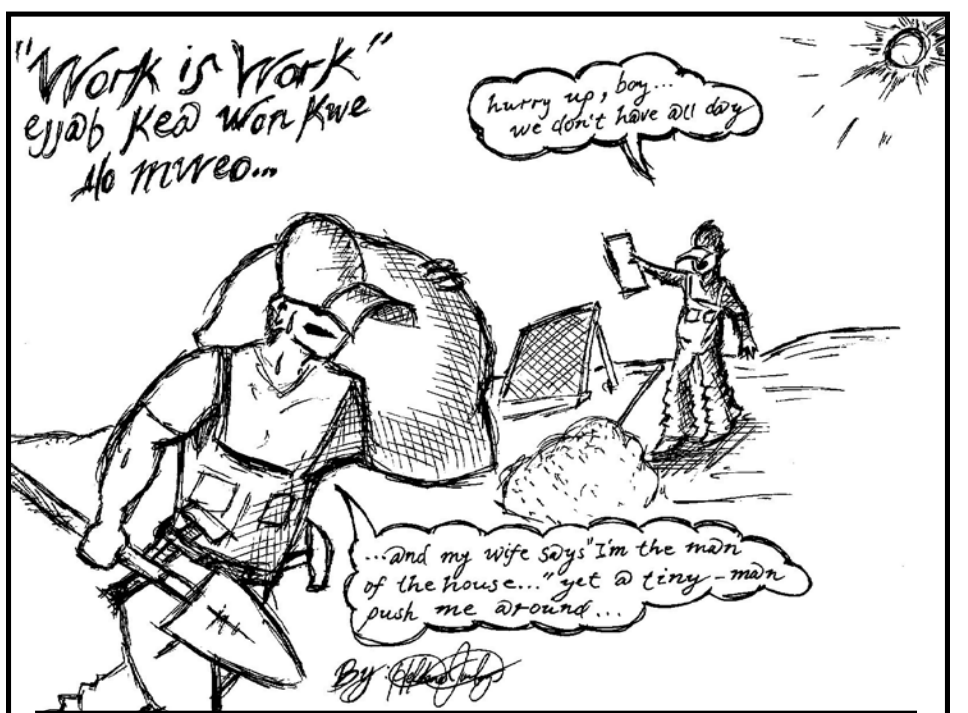 "Work is Work"
ejjab kea won kwe
ilo mweo...
hurry up, boy...
we don't have all day
...and my wife says "I'm the man
of the house..." yet a tiny-man
push me around...
By: